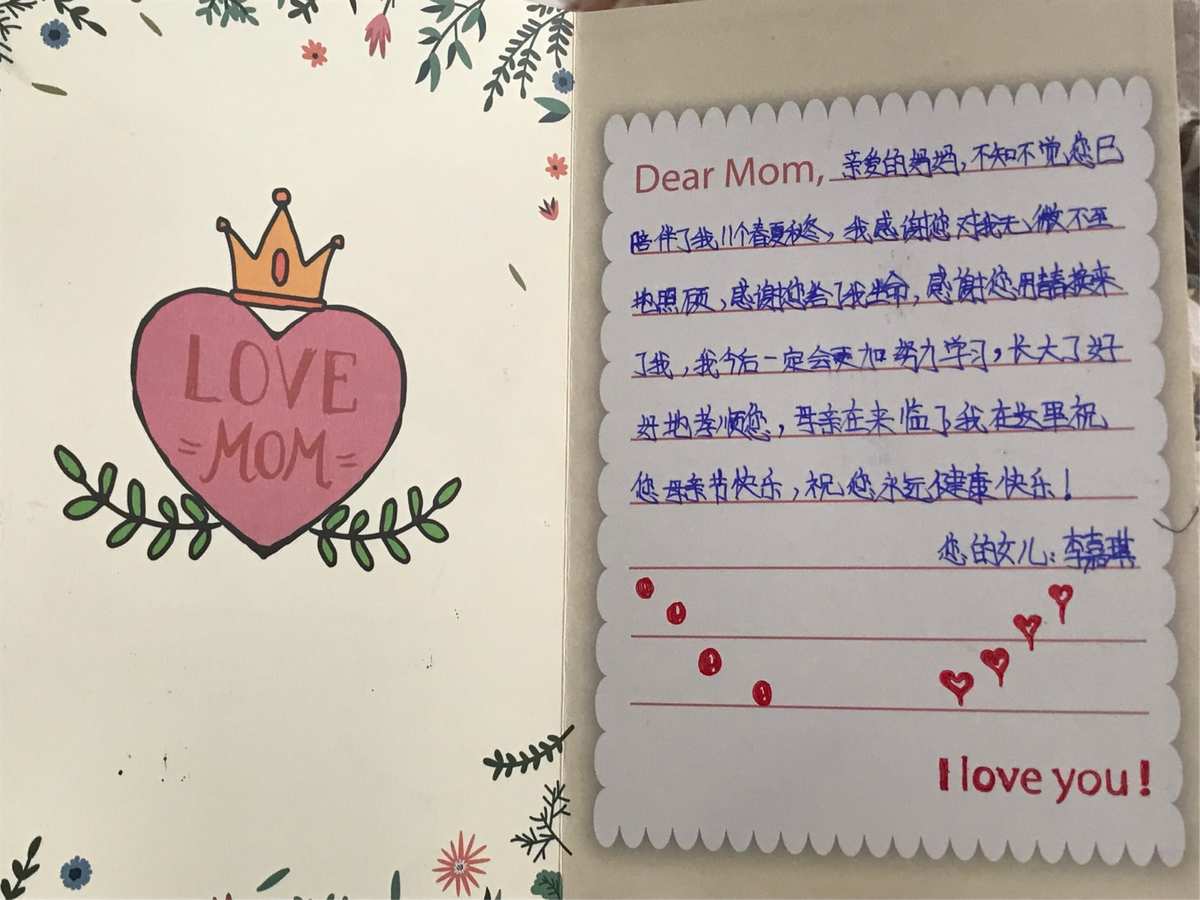 LOVE
=MOM=
Dear Mom, 亲爱的妈妈,不知不觉您已
陪伴了我11个春夏秋冬,我感谢您对我无微不至
地照顾,感谢您给了我生命,感谢您用青春换来
了我,我今后一定会更加努力学习,长大了好
好地孝顺您,母亲在来临了我在这里祝
您母亲节快乐,祝您永远健康快乐!
您的女儿:李嘉琪
I love you!